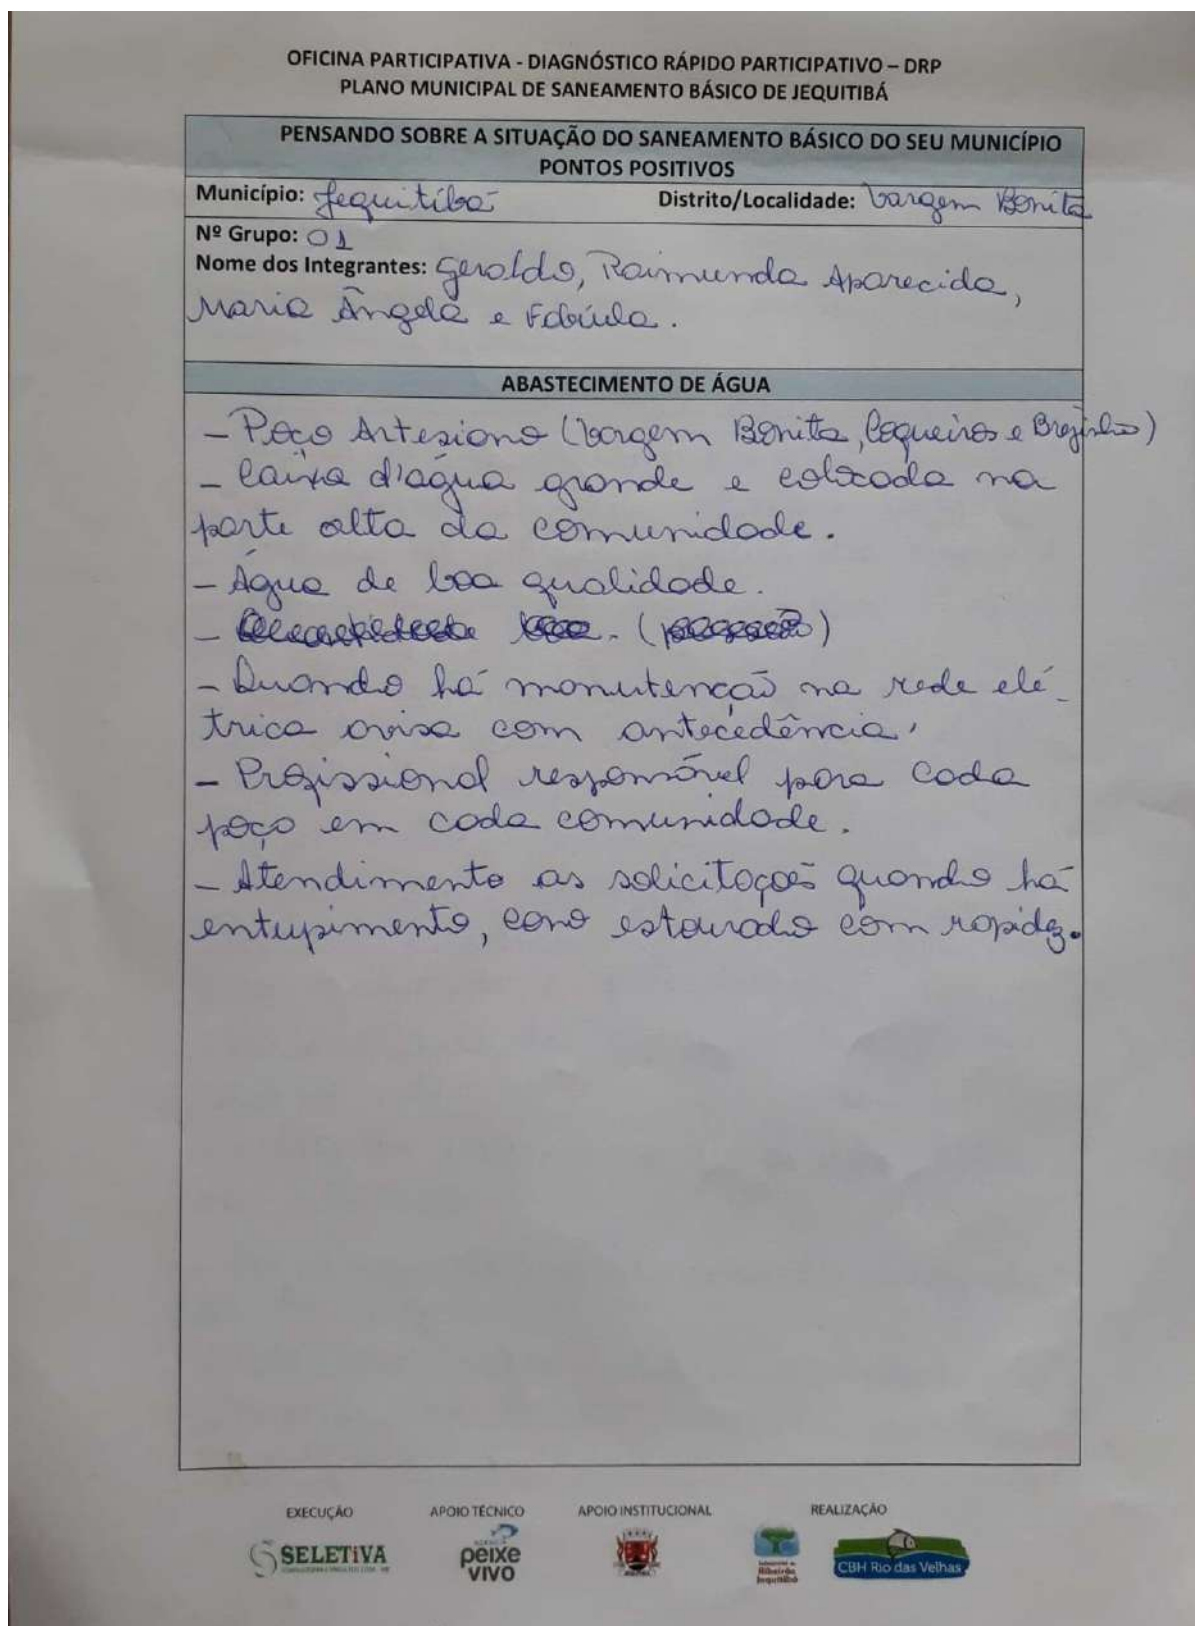 OFICINA PARTICIPATIVA - DIAGNÓSTICO RÁPIDO PARTICIPATIVO – DRP
PLANO MUNICIPAL DE SANEAMENTO BÁSICO DE JEQUITIBÁ
PENSANDO SOBRE A SITUAÇÃO DO SANEAMENTO BÁSICO DO SEU MUNICÍPIO
PONTOS POSITIVOS
Município: Jequitibá Distrito/Localidade: Vargem Bonita
Nº Grupo: 01
Nome dos Integrantes: Geraldo, Raimunda Aparecida,
Maria Ângela e Fabíula.
ABASTECIMENTO DE ÁGUA
- Poço Artesiano (Vargem Bonita, Coqueiros e Brejinho)
- Caixa d'água grande e colocada na
parte alta da comunidade.
- Água de boa qualidade.
- Quando há manutenção na rede elé-
trica avisa com antecedência.
- Profissional responsável para cada
poço em cada comunidade.
- Atendimento as solicitações quando há
entupimento, cano estourado com rapidez.
EXECUÇÃO APOIO TÉCNICO APOIO INSTITUCIONAL REALIZAÇÃO
SELETIVA
peixe
vivo
Ribeirão
Jequitibá
CBH Rio das Velhas